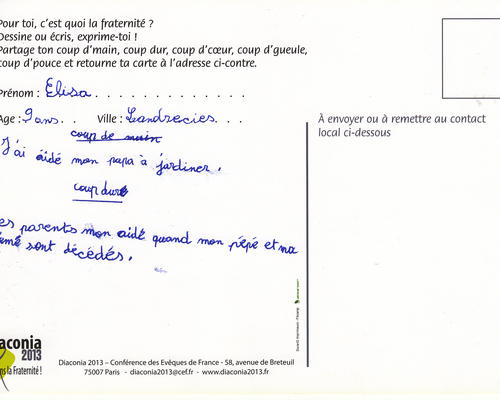 Pour toi, c'est quoi la fraternité ?
Dessine ou écris, exprime-toi !
Partage ton coup d'main, coup dur, coup d'cœur, coup d'gueule,
coup d'pouce et retourne ta carte à l'adresse ci-contre.
Prénom : Elisa
Age : 9 ans Ville : Landrecies
coup de main
J'ai aidé mon papa à jardiner.
coup dure
es parents mon aidé quand mon pépé et ma
sont décédés.
À envoyer ou à remettre au contact
local ci-dessous
iaconia
2013
ns la Fraternité !
Diaconia 2013 – Conférence des Evêques de France - 58, avenue de Breteuil
75007 Paris - diaconia2013@cef.fr - www.diaconia2013.fr